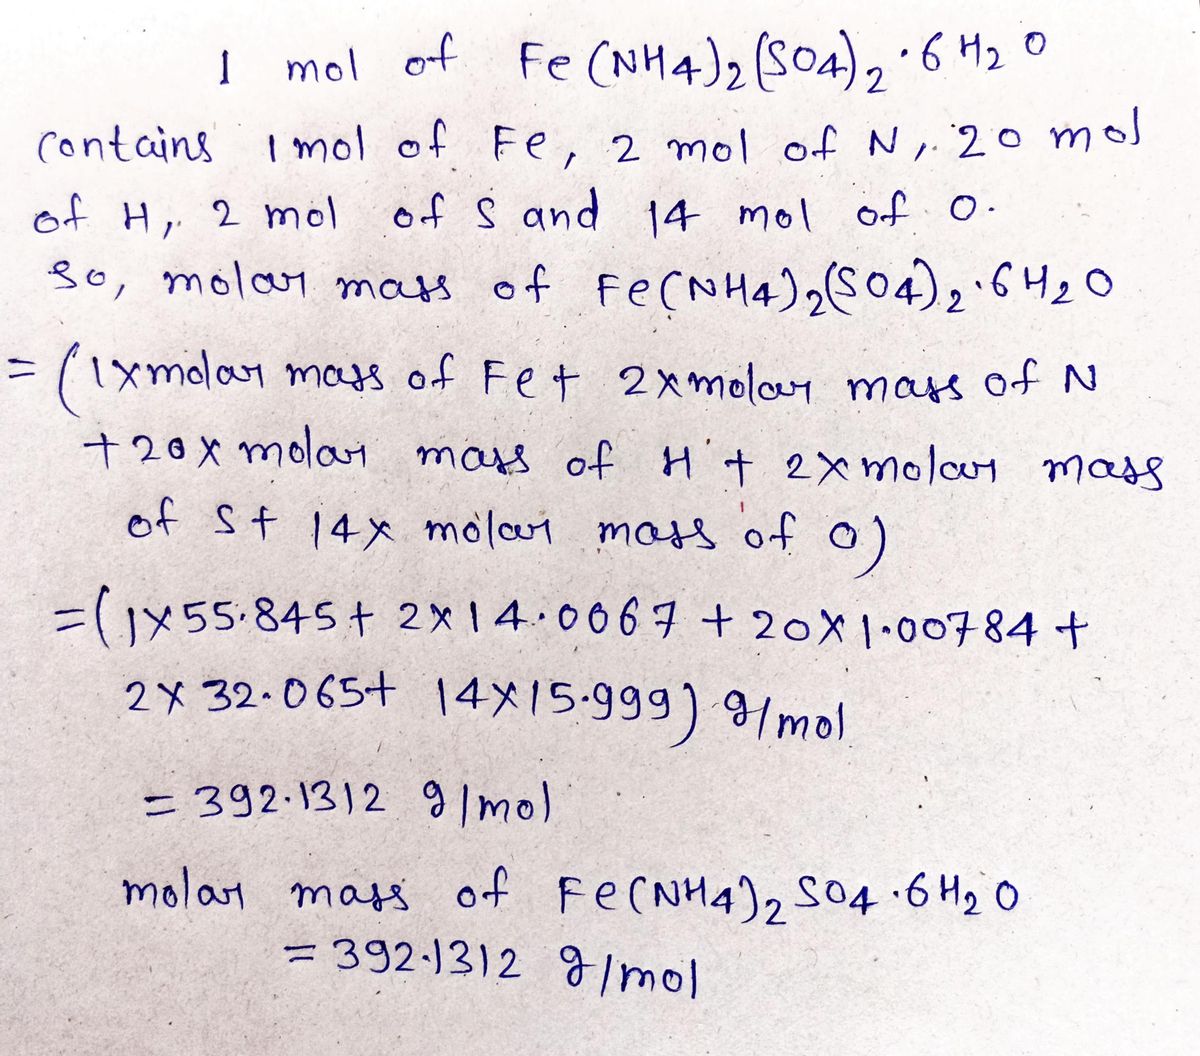 1 mol of Fe(NH4)2(SO4)2·6H2O
contains 1 mol of Fe, 2 mol of N, 20 mol
of H, 2 mol of S and 14 mol of O.
So, molar mass of Fe(NH4)2(SO4)2·6H2O
= (1×molar mass of Fe + 2×molar mass of N
+20× molar mass of H + 2×molar mass
of S + 14× molar mass of O)
=(1×55.845+ 2×14.0067 + 20×1.00784 +
2×32.065+ 14×15.999) g/mol
= 392.1312 g/mol
molar mass of Fe(NH4)2SO4·6H2O
= 392.1312 g/mol